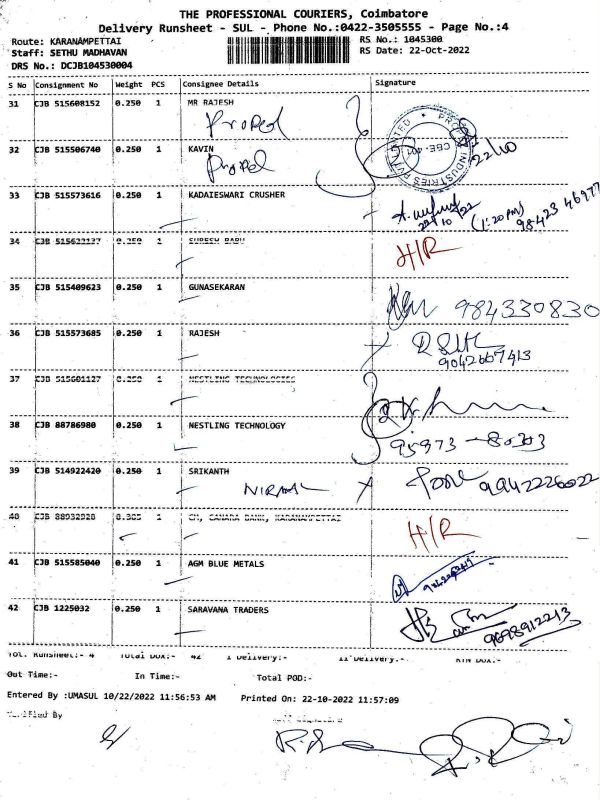 THE PROFESSIONAL COURIERS, Coimbatore
Delivery Runsheet - SUL - Phone No.:0422-3505555 - Page No.:4
Route: KARANAMPETTAI
RS No.: 1045300
Staff: SETHU MADHAVAN
RS Date: 22-Oct-2022
DRS No.: DCJB104530004
S No Consignment No Weight PCS Consignee Details Signature
31 CJB 515608152 0.250 1 MR RAJESH
Propel
32 CJB 515506740 0.250 1 KAVIN
Propel
CBE-401
22/10
33 CJB 515573616 0.250 1 KADAIESWARI CRUSHER
22/10/22 (1:20 PM) 98423 46977
34 CJB 515622137 0.250 1 SURESH BABU
H/R
35 CJB 515409623 0.250 1 GUNASEKARAN
984330830
36 CJB 515573685 0.250 1 RAJESH
9042667413
37 CJB 515601127 0.250 1 NESTLING TECHNOLOGIES
38 CJB 88786980 0.250 1 NESTLING TECHNOLOGY
95973-80303
39 CJB 514922420 0.250 1 SRIKANTH
9942226022
40 CJB 88932928 0.305 1 CM, CANARA BANK, KARANAMPETTAI
H/R
41 CJB 515585040 0.250 1 AGM BLUE METALS
42 CJB 1225032 0.250 1 SARAVANA TRADERS
9698912213
Tot. Runsheet:- 4 Total Dox:- 42 I Delivery:- II Delivery:- RTN Dox:-
Out Time:- In Time:- Total POD:-
Entered By :UMASUL 10/22/2022 11:56:53 AM Printed On: 22-10-2022 11:57:09
Verified By